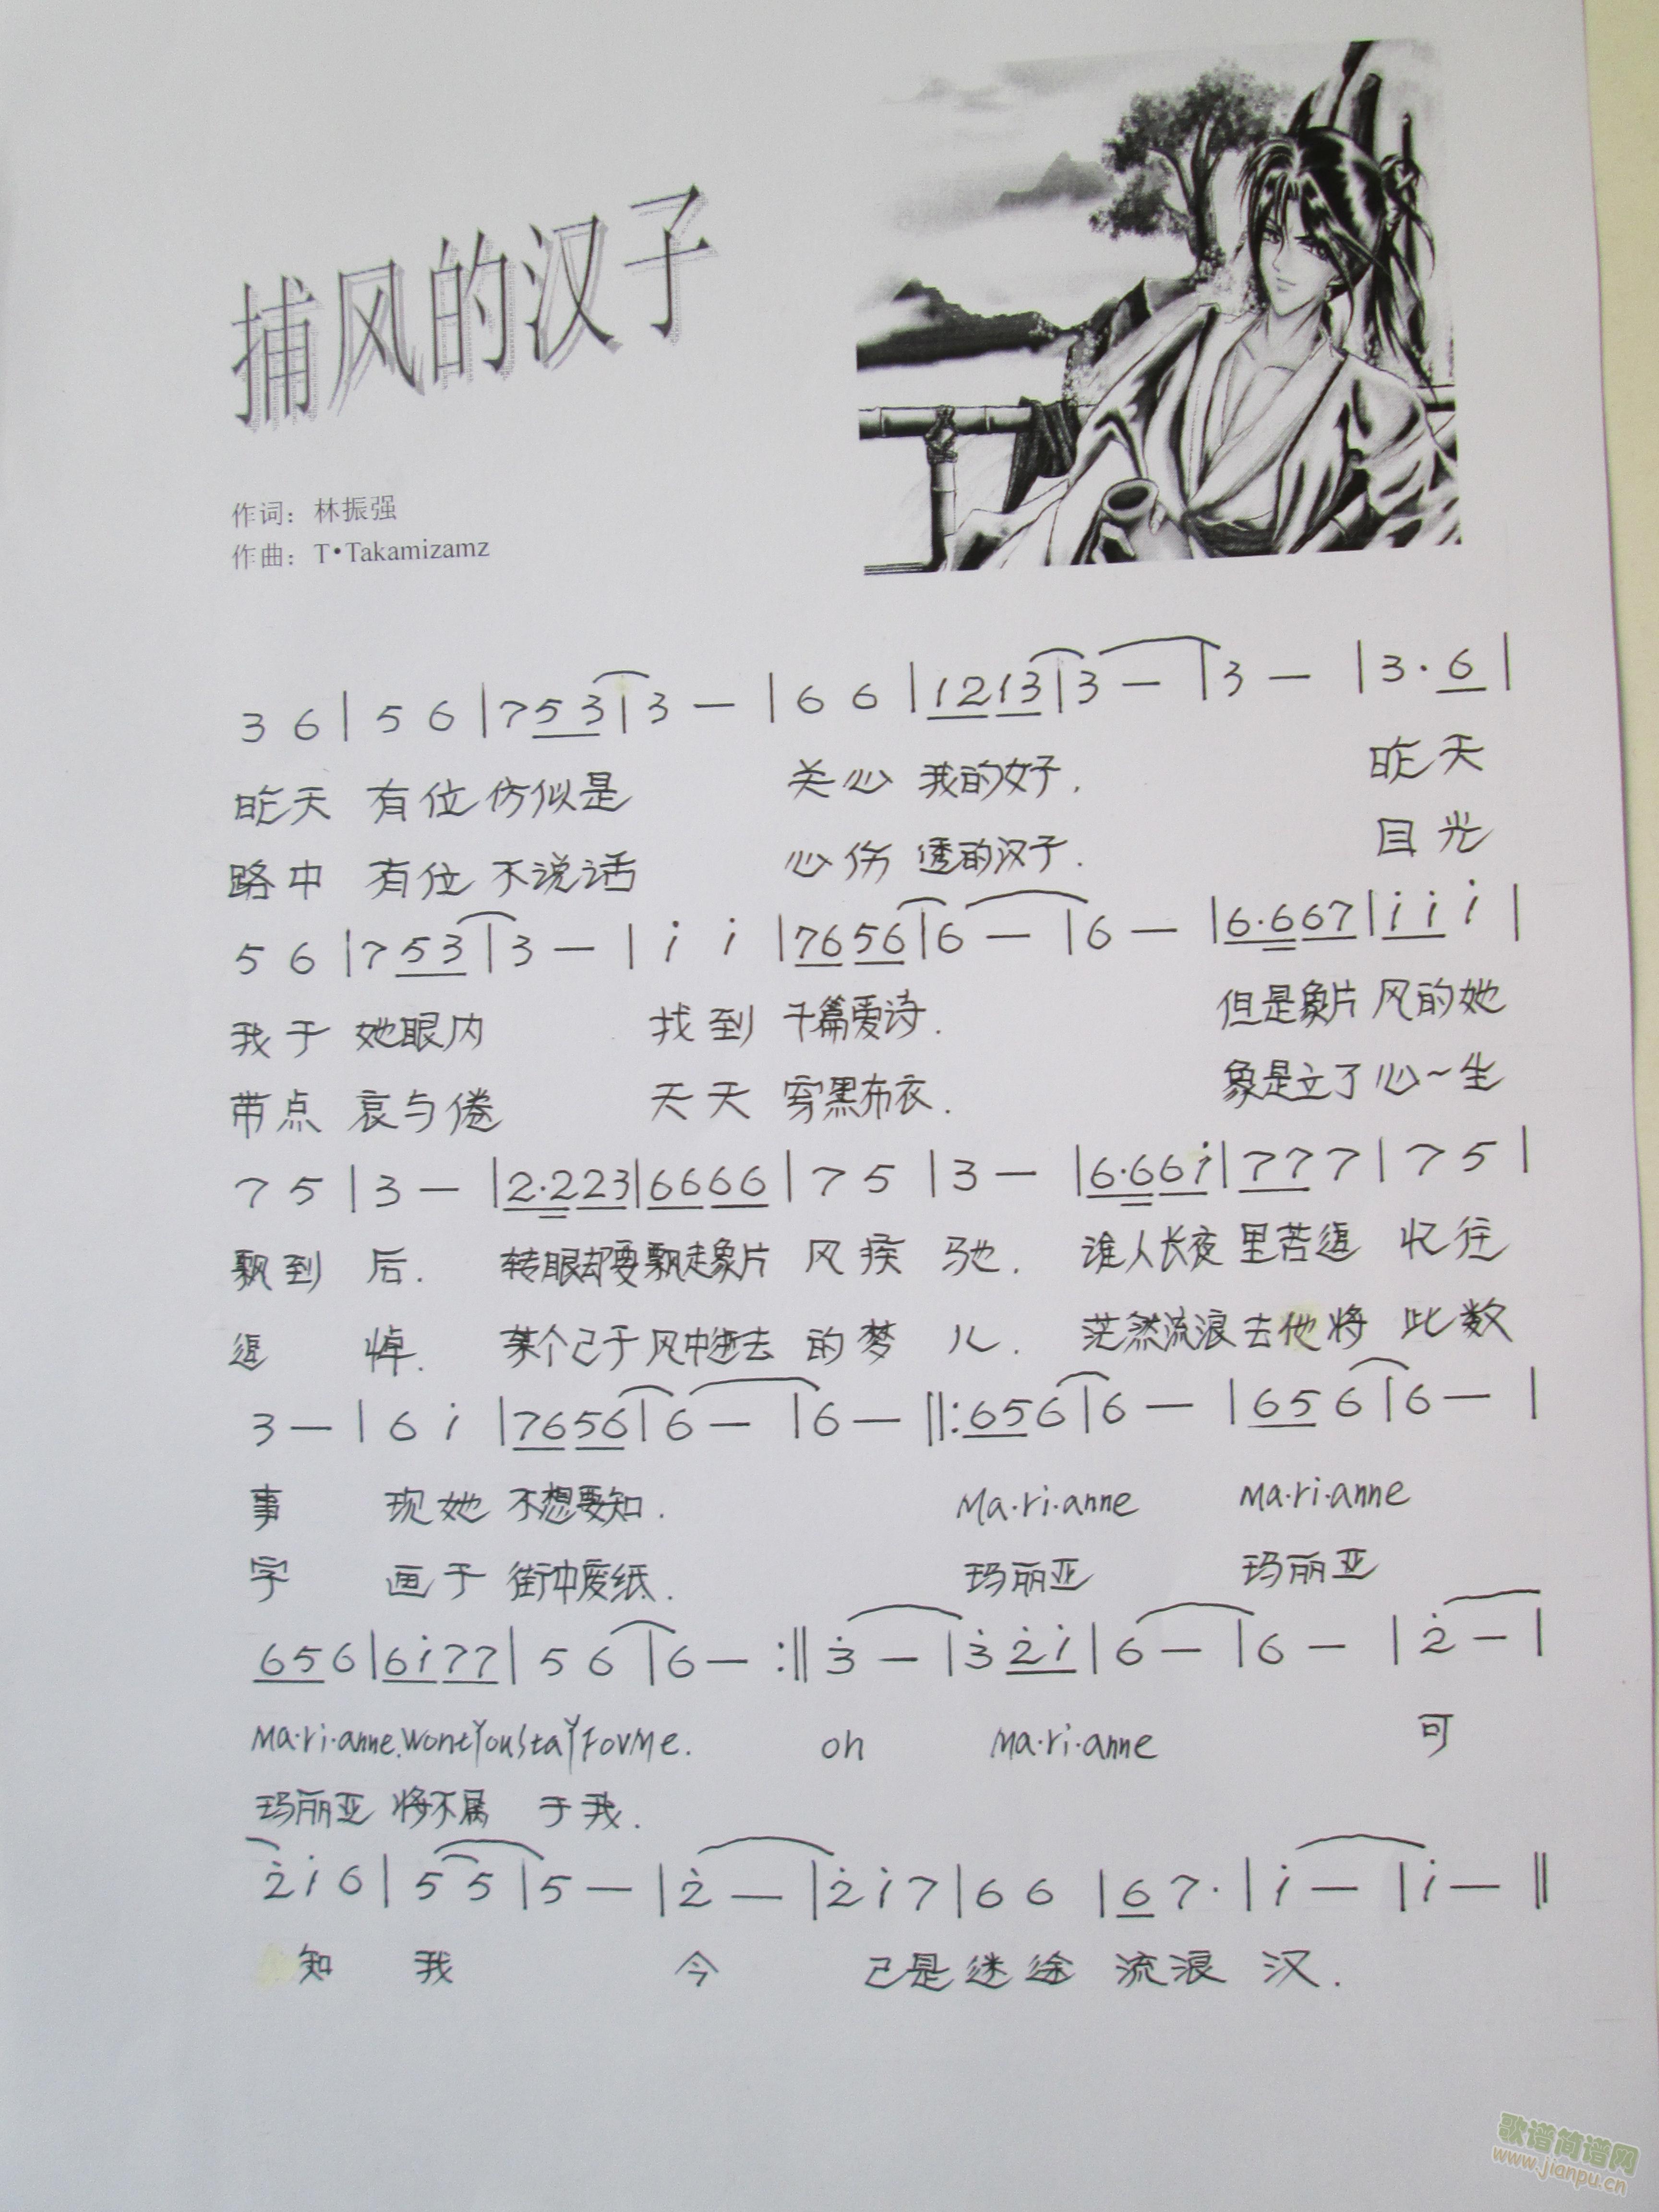 捕风的汉子
作词：林振强
作曲：T•Takamizamz
3 6 | 5 6 | 7 5 3 | 3 — | 6 6 | 1 2 1 3 | 3 — | 3 — | 3 · 6 |
昨天 有位仿似是 关心 我的女子. 昨天
路中 有位不说话 心伤 透的汉子. 目光
5 6 | 7 5 3 | 3 — | i i | 7 6 5 6 | 6 — | 6 — | 6 · 6 6 7 | i i i |
我于 她眼内 找到 千篇爱诗. 但是象片 风的她
带点 哀与倦 天天 穿黑布衣. 象是立了心一生
7 5 | 3 — | 2 · 2 2 3 | 6 6 6 6 | 7 5 | 3 — | 6 · 6 6 i | 7 7 7 | 7 5 |
飘到 后. 转眼却要飘走象片 风疾 驰. 谁人长夜里苦追 忆往
追 悼. 某个己于风中逝去 的梦 儿. 茫然流浪去他将 此数
3 — | 6 i | 7 6 5 6 | 6 — | 6 — ‖: 6 5 6 | 6 — | 6 5 6 | 6 — |
事 现她 不想要知. Ma·ri·anne Ma·ri·anne
字 画于 街中废纸. 玛丽亚 玛丽亚
6 5 6 | 6 i 7 7 | 5 6 | 6 — :‖ 3̇ — | 3̇ 2̇ i | 6 — | 6 — | 2̇ — |
Ma·ri·anne.WontYouStaYForMe. oh Ma·ri·anne 可
玛丽亚 将不属 于我.
2̇ i 6 | 5 5 | 5 — | 2̇ — | 2̇ i 7 | 6 6 | 6 7 · | i — | i — ‖
知 我 今 己是迷途 流浪 汉.
歌谱简谱网
www.jianpu.cn